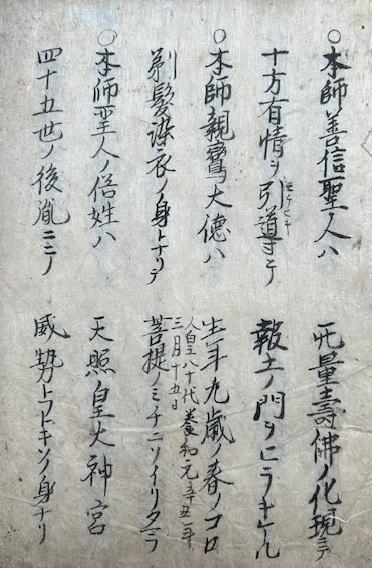 ○本師善信聖ノ人ハ
无量壽佛ノ化現ニテ
十方有情ヲ引導セン
報土ノ門ヲヒラキケル
○本師親鸞大徳ハ
生年九歳ノ春ノコロ
人皇八十代養和元辛丑年
三月十五日
剃髪染衣ノ身トナリテ
菩提ノミチニソイリタマフ
○本師聖人ノ俗姓ハ
天照皇大神宮
四十五世ノ後胤ニテ
威勢トフトキソノ身ナリ